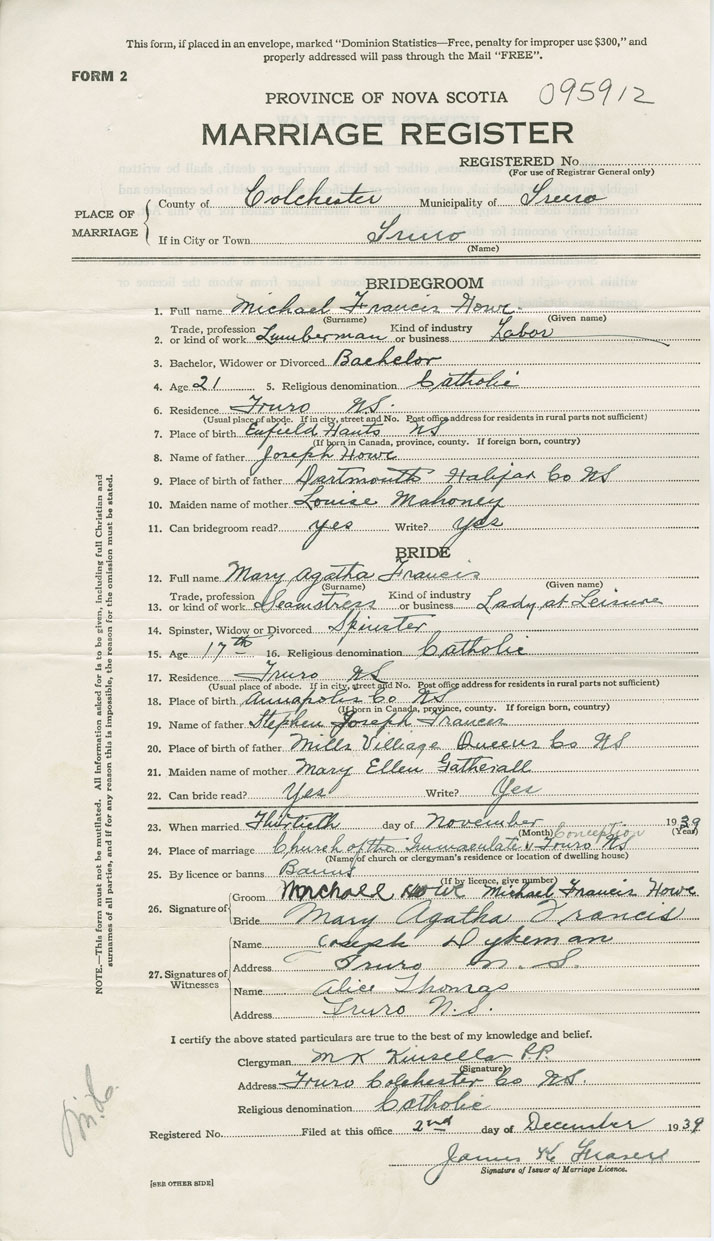 This form, if placed in an envelope, marked “Dominion Statistics—Free, penalty for improper use $300,” and
properly addressed will pass through the Mail “FREE”.
FORM 2
PROVINCE OF NOVA SCOTIA 095912
MARRIAGE REGISTER
REGISTERED No.
(For use of Registrar General only)
PLACE OF MARRIAGE
County of Colchester Municipality of Truro
If in City or Town Truro
(Name)
BRIDEGROOM
1. Full name Michael Francis Howe
(Surname) (Given name)
Trade, profession Kind of industry
2. or kind of work Lumberman or business Labor
3. Bachelor, Widower or Divorced Bachelor
4. Age 21 5. Religious denomination Catholic
6. Residence Truro N.S.
(Usual place of abode. If in city, street and No. Post office address for residents in rural parts not sufficient)
7. Place of birth Enfield Hants NS
(If born in Canada, province, county. If foreign born, country)
8. Name of father Joseph Howe
9. Place of birth of father Dartmouth Halifax Co NS
10. Maiden name of mother Louise Mahoney
11. Can bridegroom read? yes Write? yes
BRIDE
12. Full name Mary Agatha Francis
(Surname) (Given name)
Trade, profession Kind of industry
13. or kind of work Seamstress or business Lady at Leisure
14. Spinster, Widow or Divorced Spinster
15. Age 17th 16. Religious denomination Catholic
17. Residence Truro NS
(Usual place of abode. If in city, street and No. Post office address for residents in rural parts not sufficient)
18. Place of birth Annapolis Co NS
(If born in Canada, province, county. If foreign born, country)
19. Name of father Stephen Joseph Frances
20. Place of birth of father Mills Village Queens Co NS
21. Maiden name of mother Mary Ellen Gatherall
22. Can bride read? Yes Write? Yes
23. When married Thirtieth day of November 1939
(Month) (Year)
Conception
24. Place of marriage Church of the Immaculate Truro NS
(Name of church or clergyman's residence or location of dwelling house)
25. By licence or banns Banns
(If by licence, give number)
Groom Michael Howe Michael Francis Howe
26. Signature of
Bride Mary Agatha Francis
Name Joseph Dykeman
Address Truro N. S.
27. Signatures of Witnesses
Name Alice Thomas
Address Truro N.S.
I certify the above stated particulars are true to the best of my knowledge and belief.
Clergyman M K Kinsella P.P.
(Signature)
Address Truro Colchester Co NS.
Religious denomination Catholic
Registered No. Filed at this office 2nd day of December 1939
James K Fraser
Signature of Issuer of Marriage Licence.
[SEE OTHER SIDE]
NOTE.—This form must not be mutilated. All information asked for is to be given, including full Christian and
surnames of all parties, and if for any reason this is impossible, the reason for the omission must be stated.